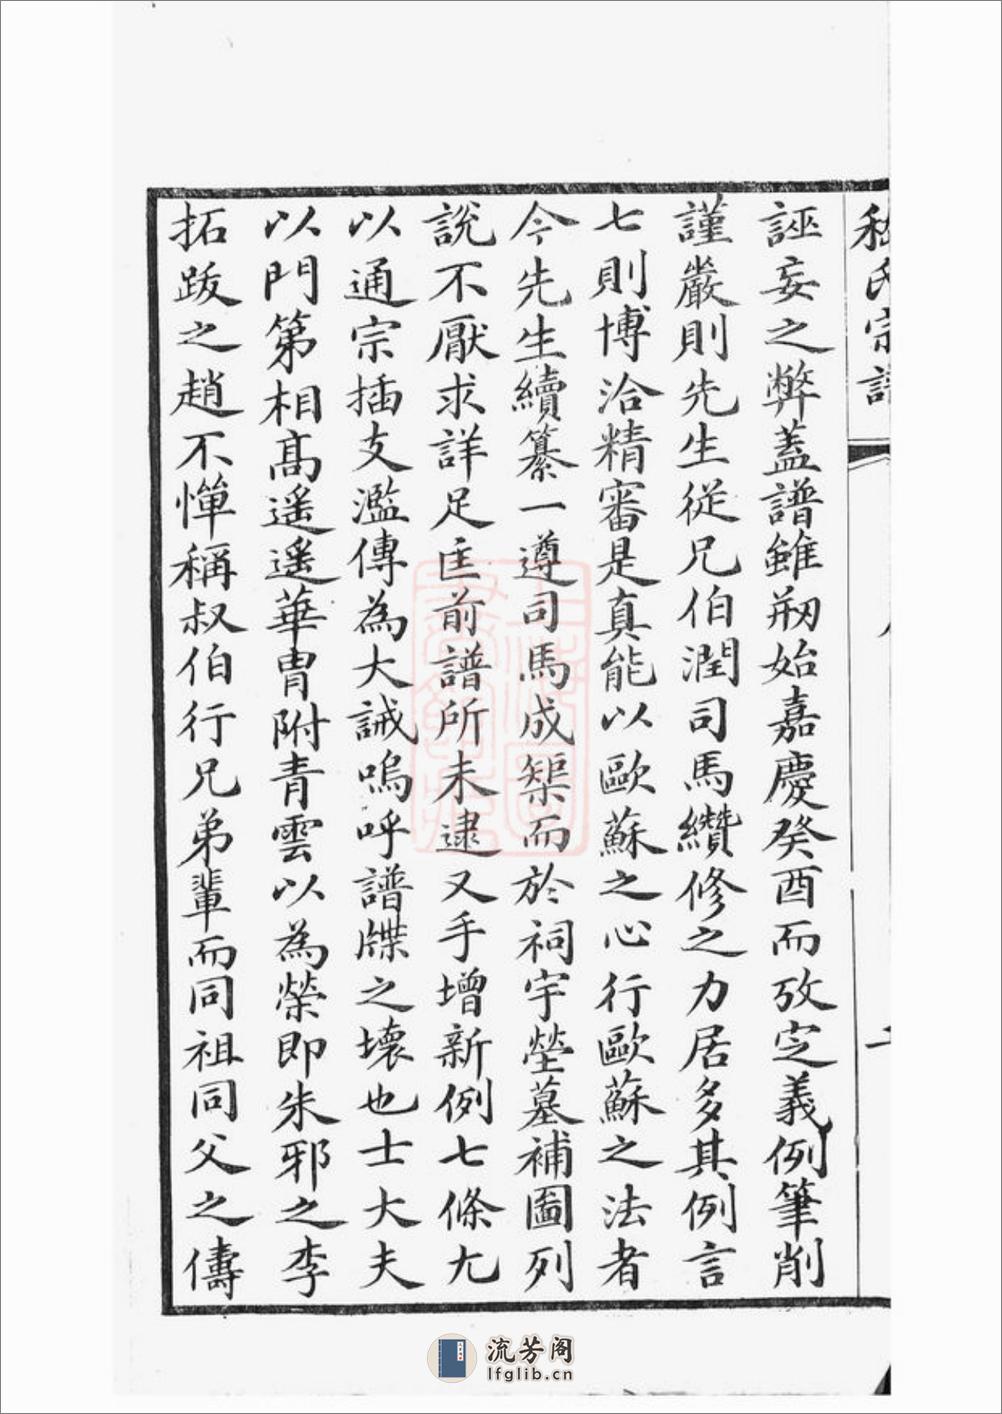 嵇氏宗譜
誣妄之弊蓋譜雖剏始嘉慶癸酉而攷定義例筆削
謹嚴則先生從兄伯潤司馬纘修之力居多其例言
七則博洽精審是真能以歐蘇之心行歐蘇之法者
今先生續纂一遵司馬成榘而於祠宇塋墓補圖列
說不厭求詳足匡前譜所未逮又手增新例七條尤
以通宗插支濫傳為大誡嗚呼譜牒之壞也士大夫
以門第相高遥遥華胄附青雲以為榮即朱邪之李
拓跋之趙不憚稱叔伯行兄弟輩而同祖同父之儔
流芳阁
lfglib.cn